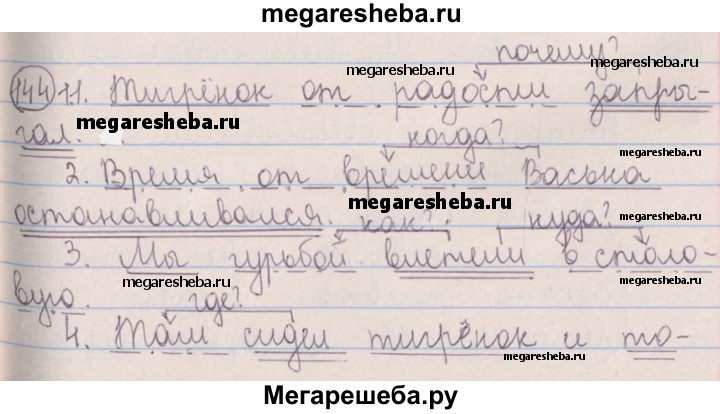 megaresheba.ru
почему?
megaresheba.ru megaresheba.ru
144 1. Тигрёнок от радости запры-
гал. megaresheba.ru когда? megaresheba.ru
2. Время от времени Васька
останавливался. megaresheba.ru как? куда?
megaresheba.ru
3. Мы гурьбой влетели в столо-
вую. megaresheba.ru где? megaresheba.ru
4. Там сидел тигрёнок и то-
megaresheba.ru
Мегарешеба.ру